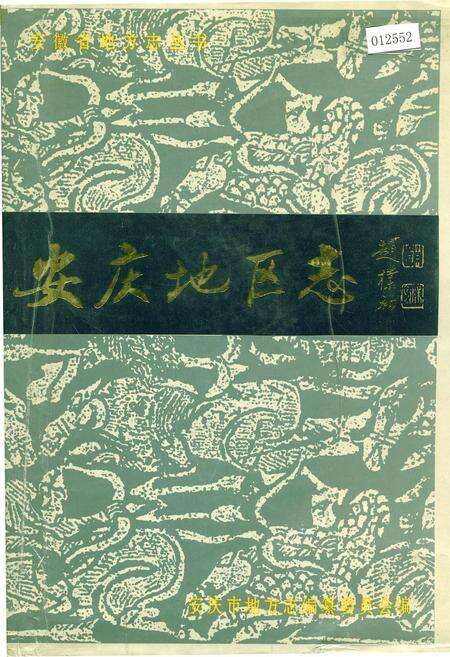 安徽省地方志丛书
012552
安庆地区志
赵朴初
安庆市地方志编纂委员会编